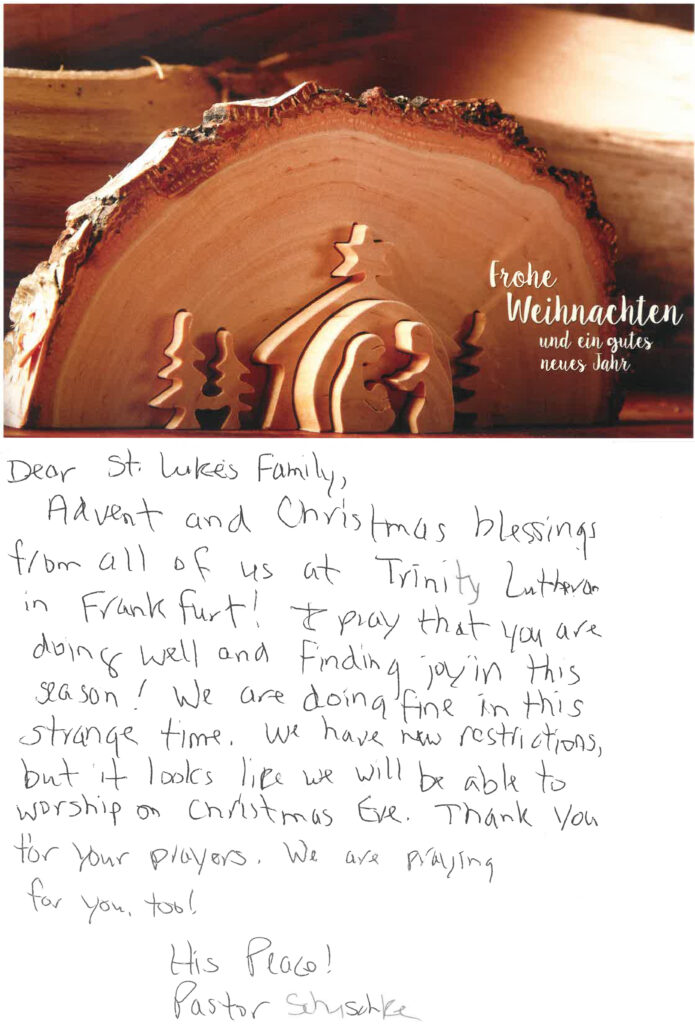 Frohe
Weihnachten
und ein gutes
neues Jahr
Dear St. Luke's Family,
Advent and Christmas blessings
from all of us at Trinity Lutheran
in Frankfurt! I pray that you are
doing well and finding joy in this
season! We are doing fine in this
strange time. We have new restrictions,
but it looks like we will be able to
worship on Christmas Eve. Thank you
for your prayers. We are praying
for you, too!
His Peace!
Pastor